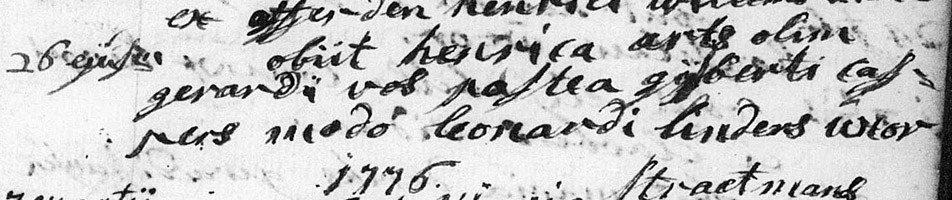 ex offerden henrici
26 ejusdem obiit henrica arts olim
gerardi vos postea gijsberti cas-
pers modo leonardi linders uxor
1776.
Straetmans